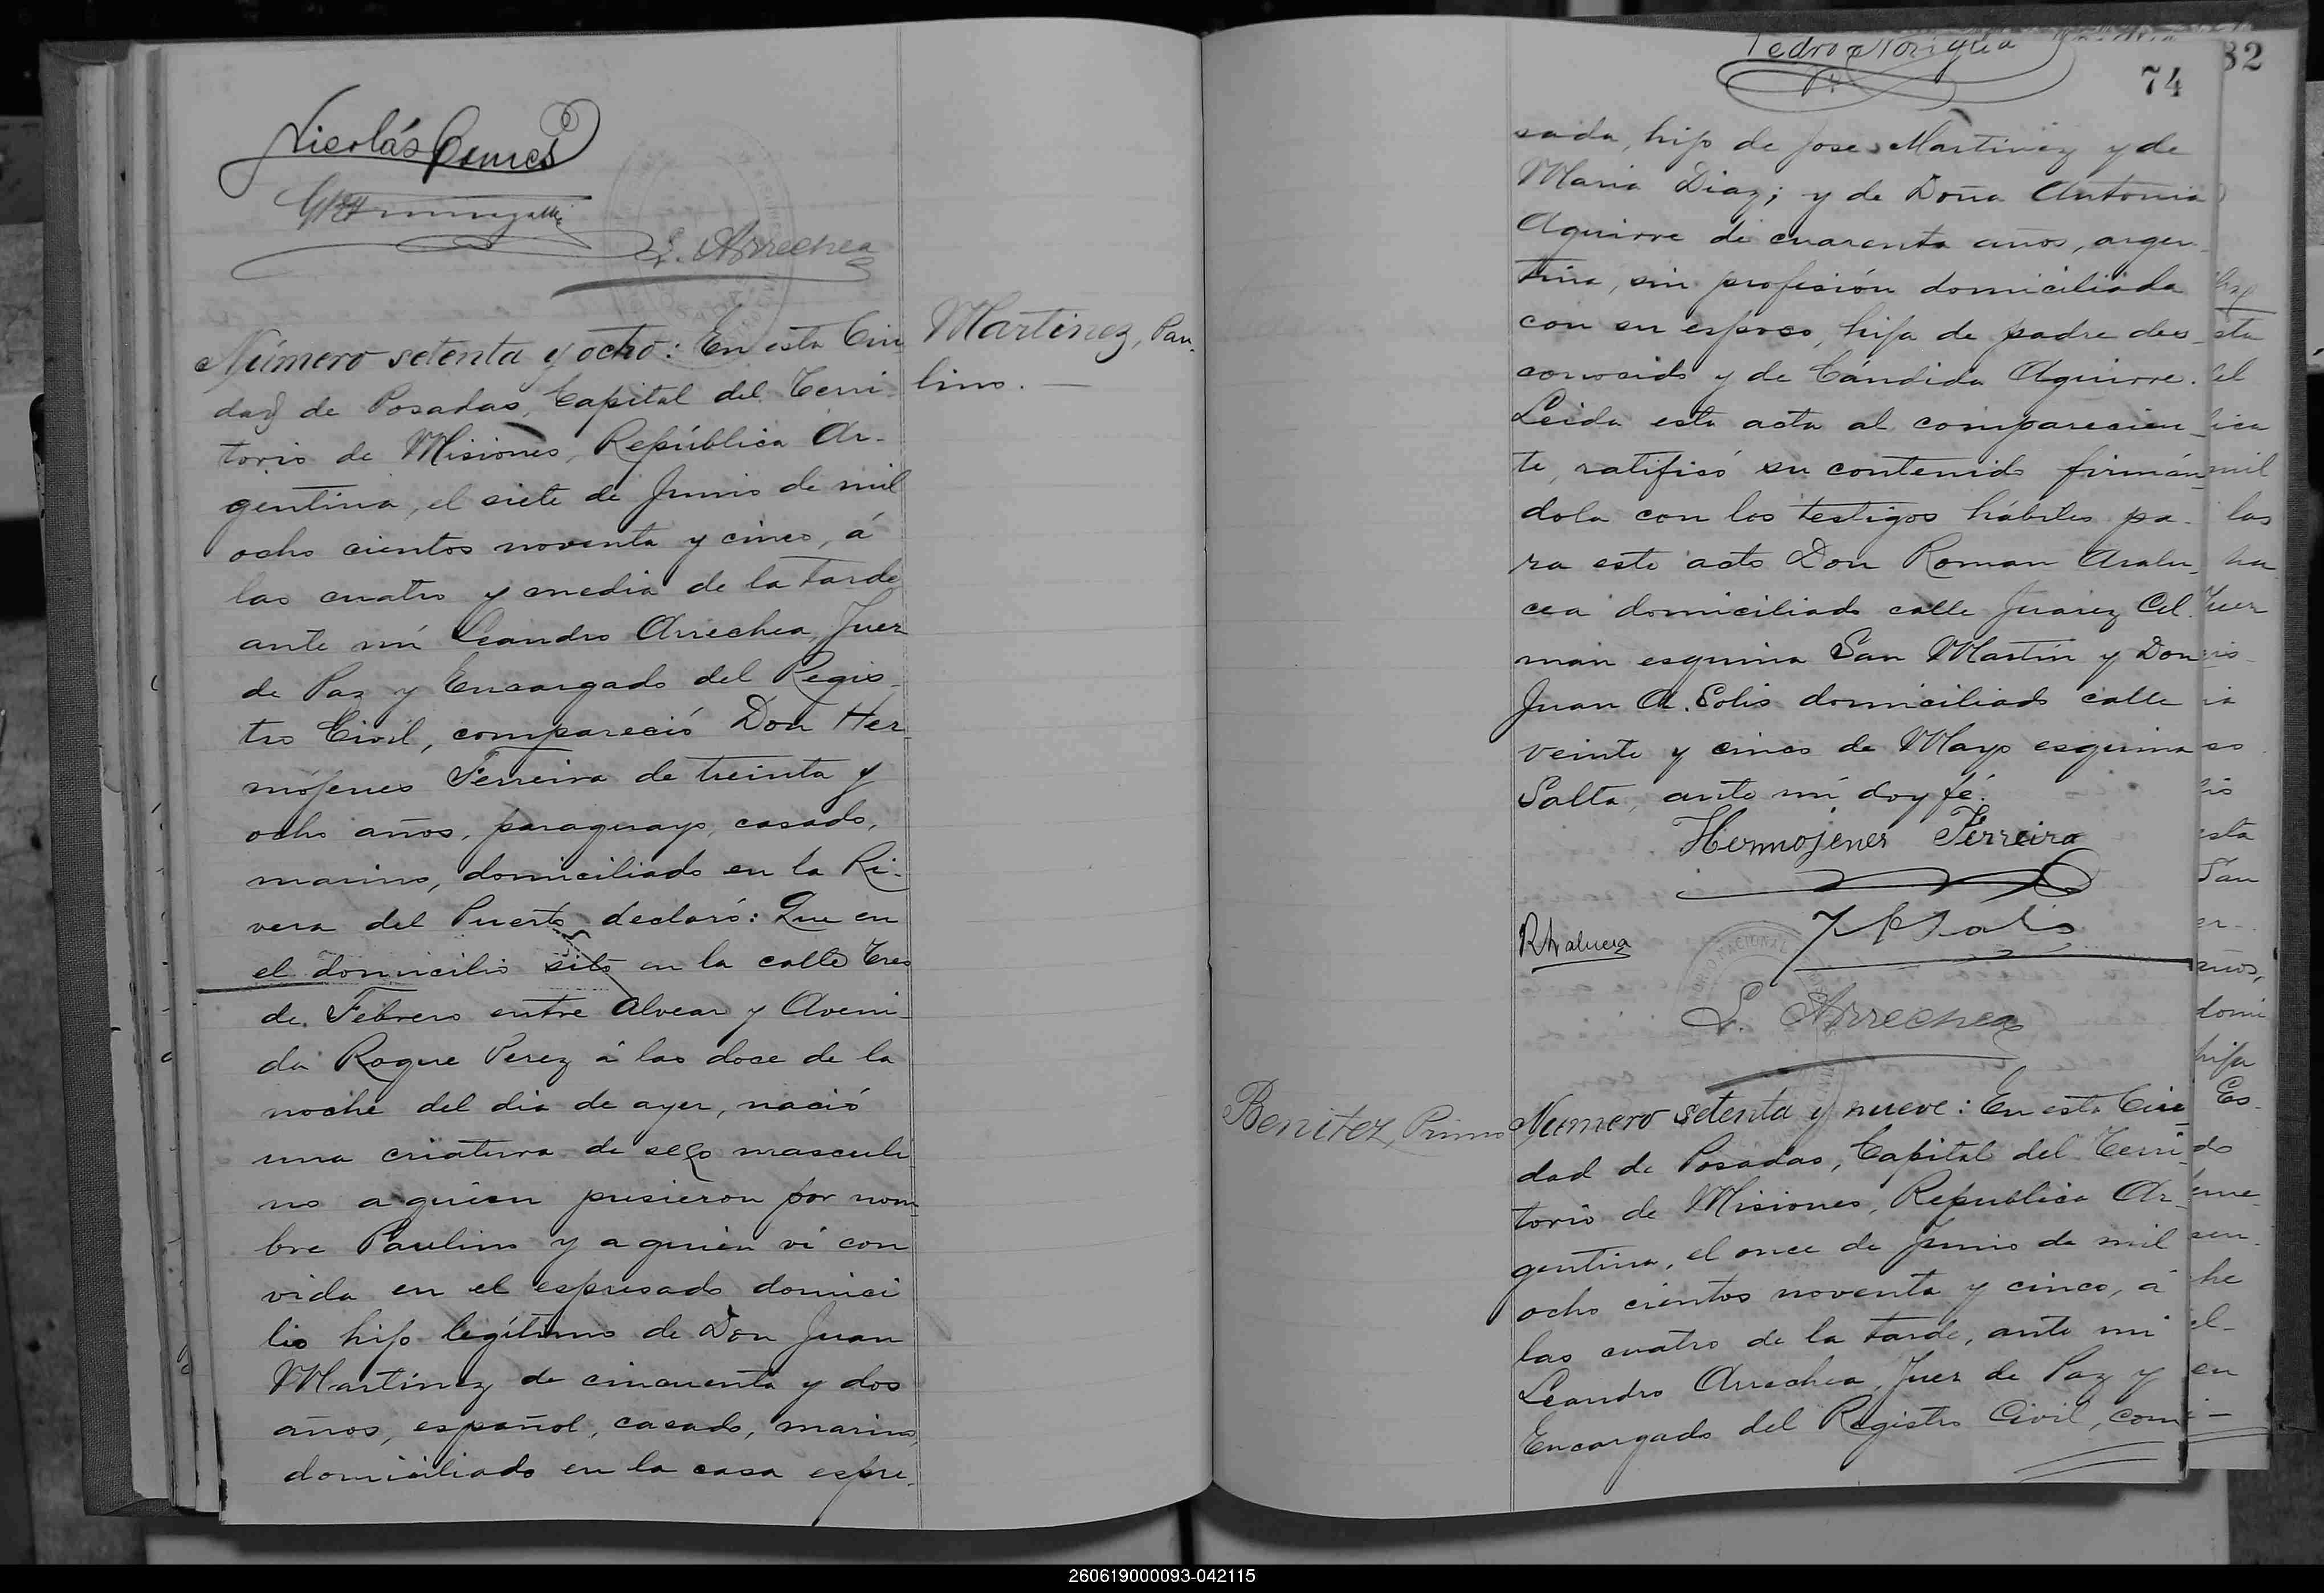 Nicolás
L. Arrechea
Número setenta y ocho: En esta Ciu
dad de Posadas, Capital del Terri
torio de Misiones, República Ar-
gentina, el siete de Junio de mil
ocho cientos noventa y cinco, á
las cuatro y media de la tarde
ante mí Leandro Arrechea, Juez
de Paz y Encargado del Regis-
tro Civil, compareció Don Her
mójenes Ferreira de treinta y
ocho años, paraguayo, casado,
marino, domiciliado en la Ri-
vera del Puerto declaró: Que en
el domicilio sito en la calle Tres
de Febrero entre Alvear y Aveni-
da Roque Perez á las doce de la
noche del dia de ayer, nació
una criatura de sexo masculi
no a quien pusieron por nom
bre Paulino y a quien ví con
vida en el espresado domici
lio hijo legítimo de Don Juan
Martinez de cincuenta y dos
años, español, casado, marino,
domiciliado en la casa espre-
Martinez, Pau-
lino. —
Pedro Noriega
74
sada, hijo de Jose Martinez y de
Maria Diaz; y de Doña Antonia
Aguirre de cuarenta años, argen-
tina, sin profesión domiciliada
con su esposo, hija de padre des-
conocido y de Cándida Aguirre.
Leida esta acta al comparecien-
te, ratificó su contenido firmán-
dola con los testigos hábiles pa-
ra este acto Don Roman Aralu-
cea domiciliado calle Juarez Cel-
man esquina San Martín y Don
Juan A. Solis domiciliado calle
veinte y cinco de Mayo esquina
Salta, ante mí doy fé.
Hermojenes Ferreira
R Aralucea
L. Arrechea
Benitez, Primo
Numero setenta y nueve: En esta Ciu-
dad de Posadas, Capital del Terri-
torio de Misiones, Republica Ar-
gentina, el once de Junio de mil
ocho cientos noventa y cinco, á
las cuatro de la tarde, ante mi
Leandro Arrechea, Juez de Paz y
Encargado del Registro Civil, com
32
260619000093-042115